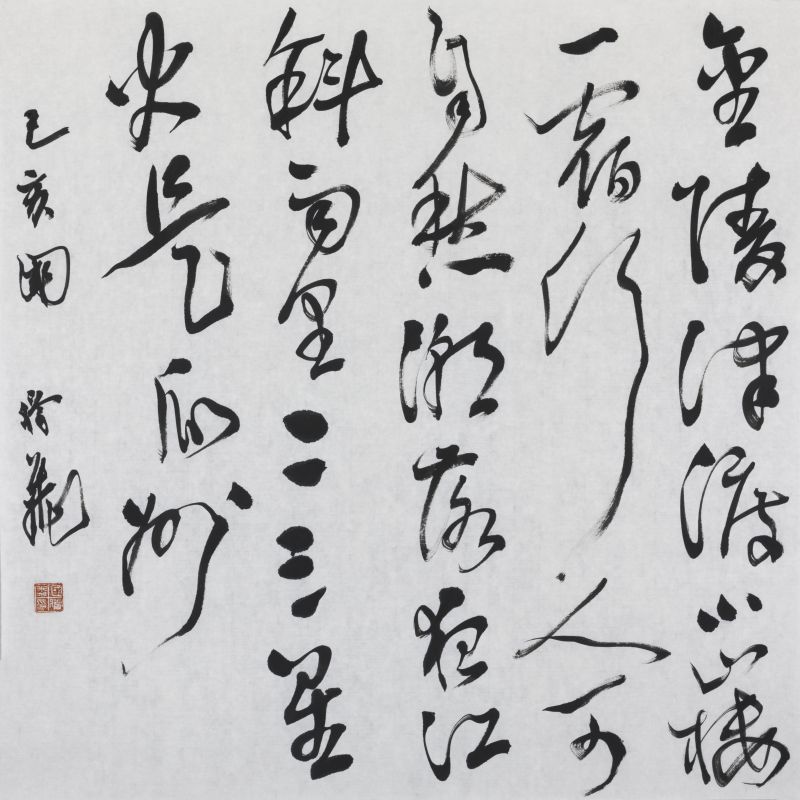 金陵津渡小山楼
一宿行人可
自愁潮落夜江
斜月里二三星
火是瓜州
己亥